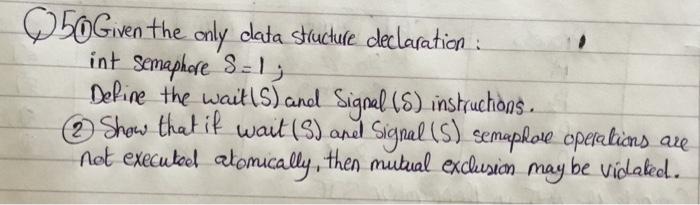 Q5① Given the only data structure declaration :
int semaphore S = 1 ;
Define the wait(S) and Signal (S) instructions.
② Show that if wait (S) and Signal (S) semaphore operations are
not executed atomically, then mutual exclusion may be violated.